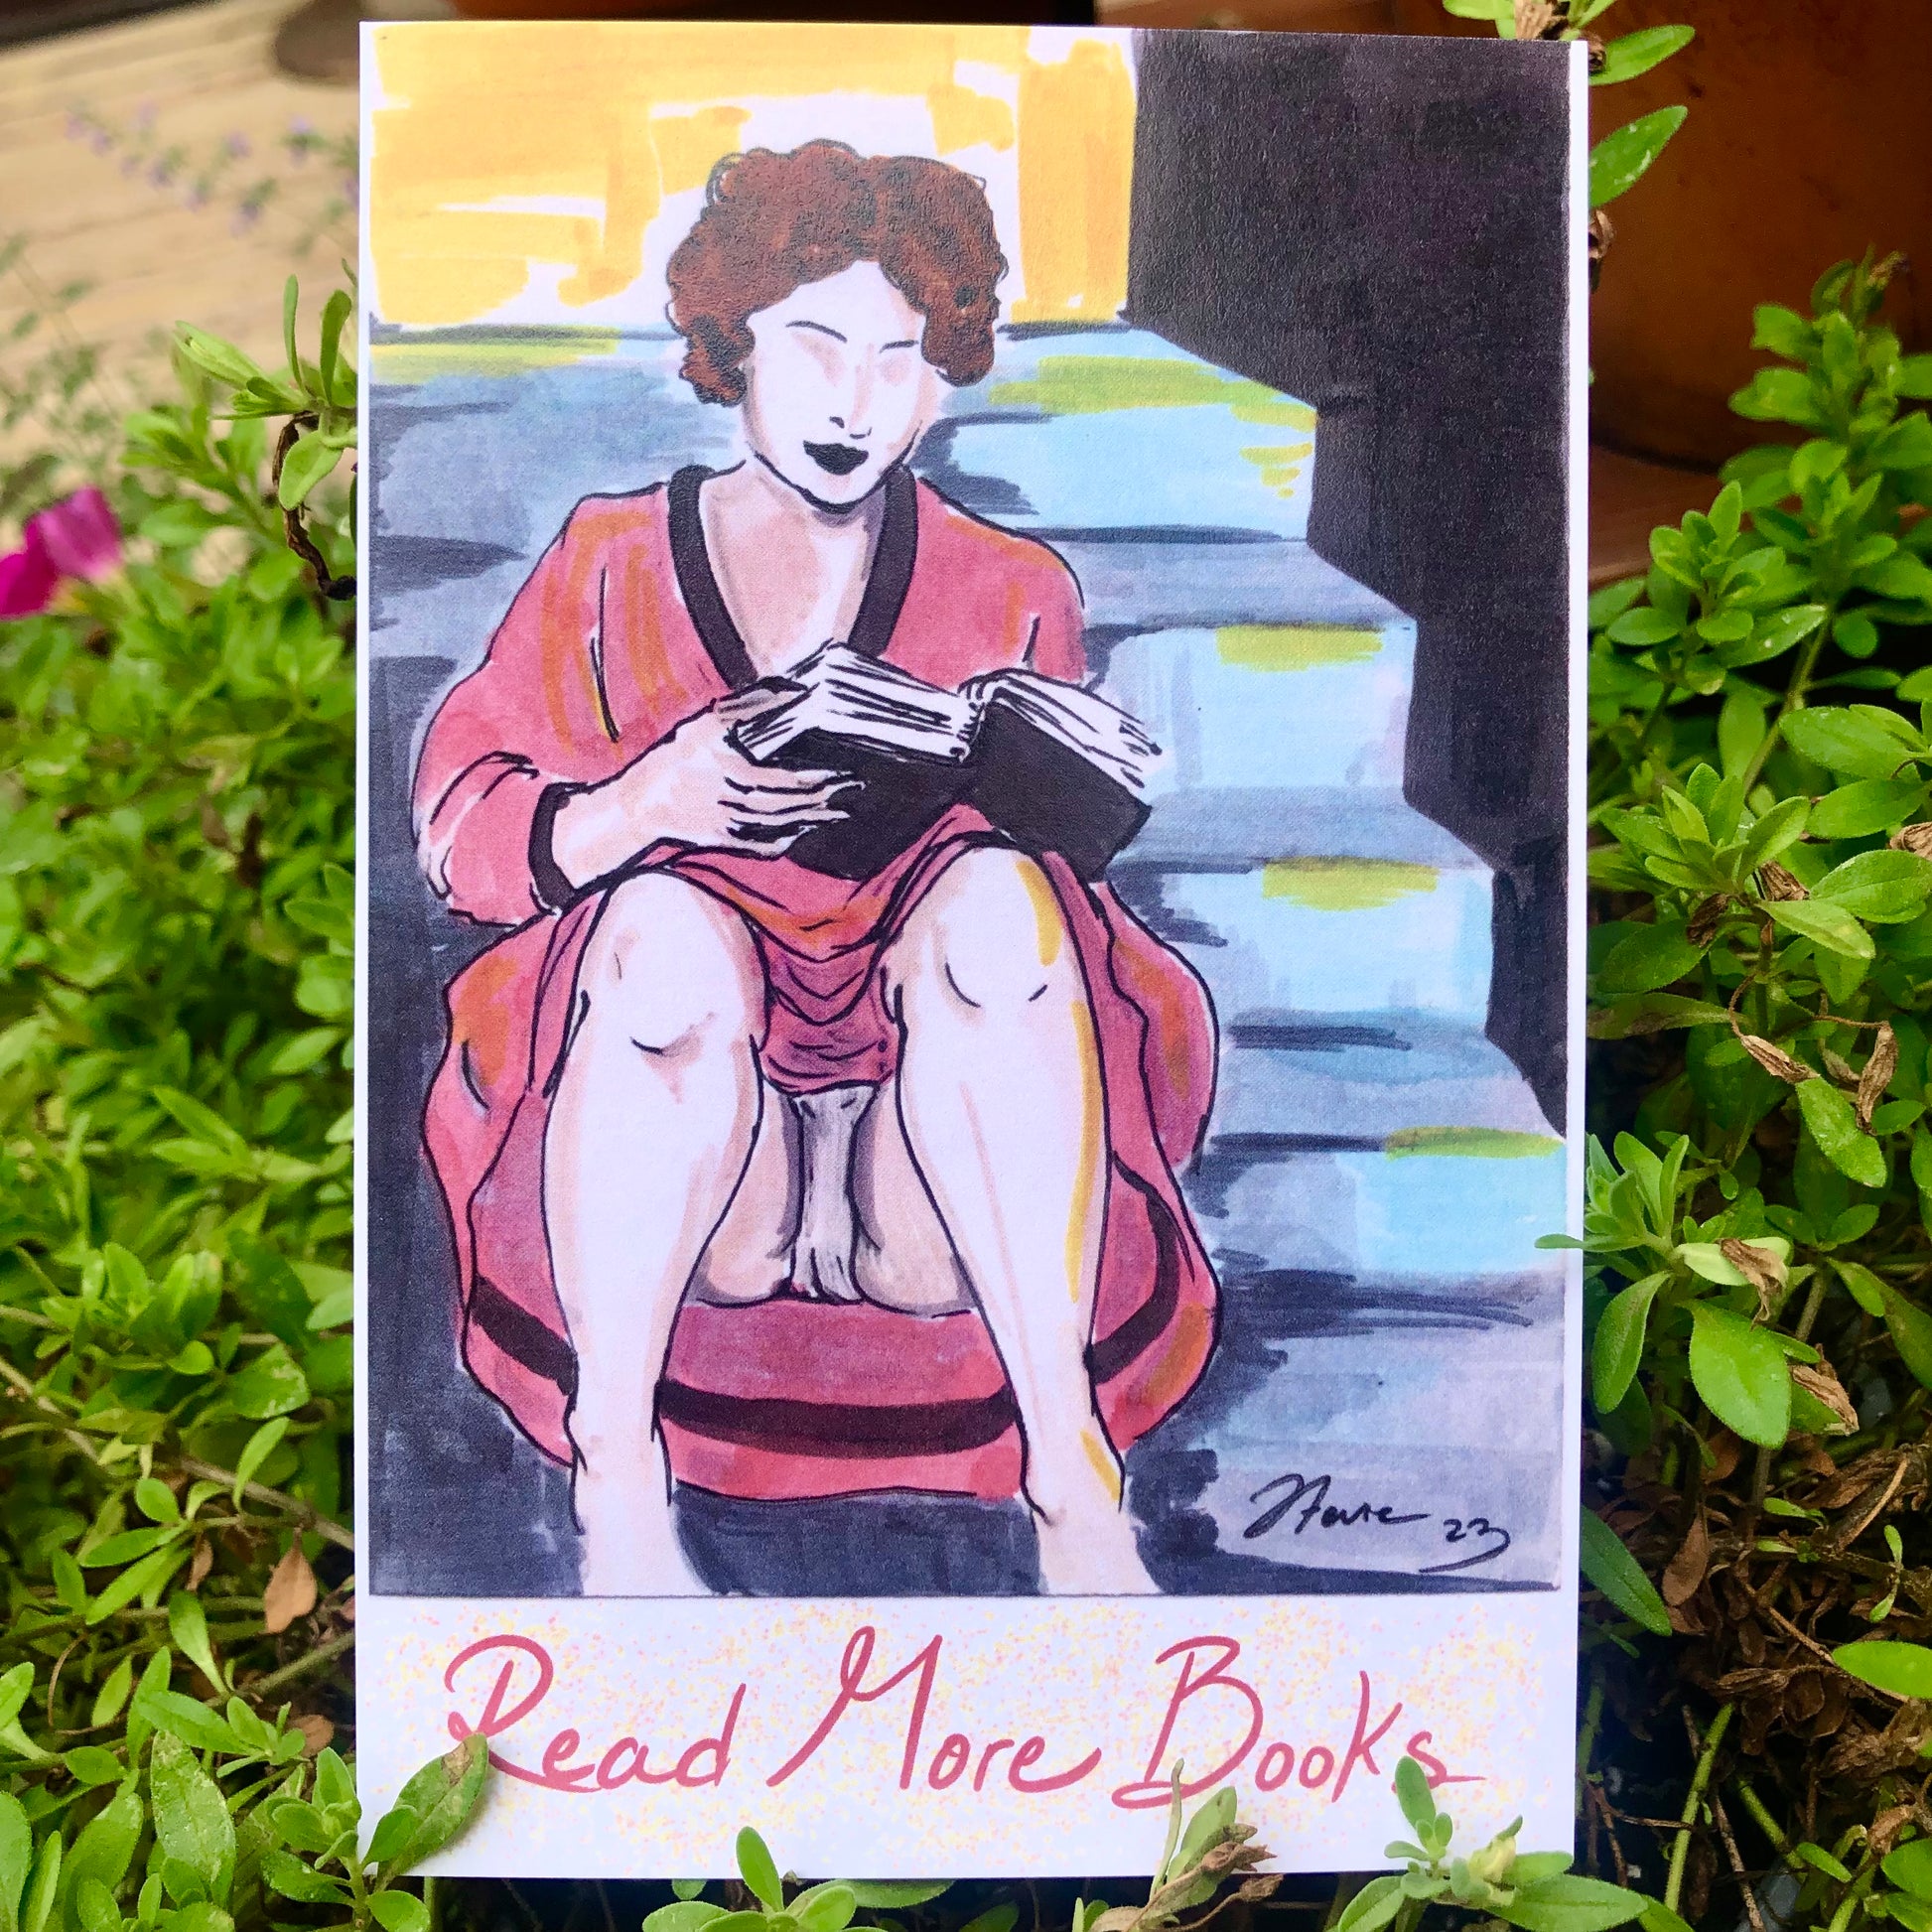 23
Read More Books